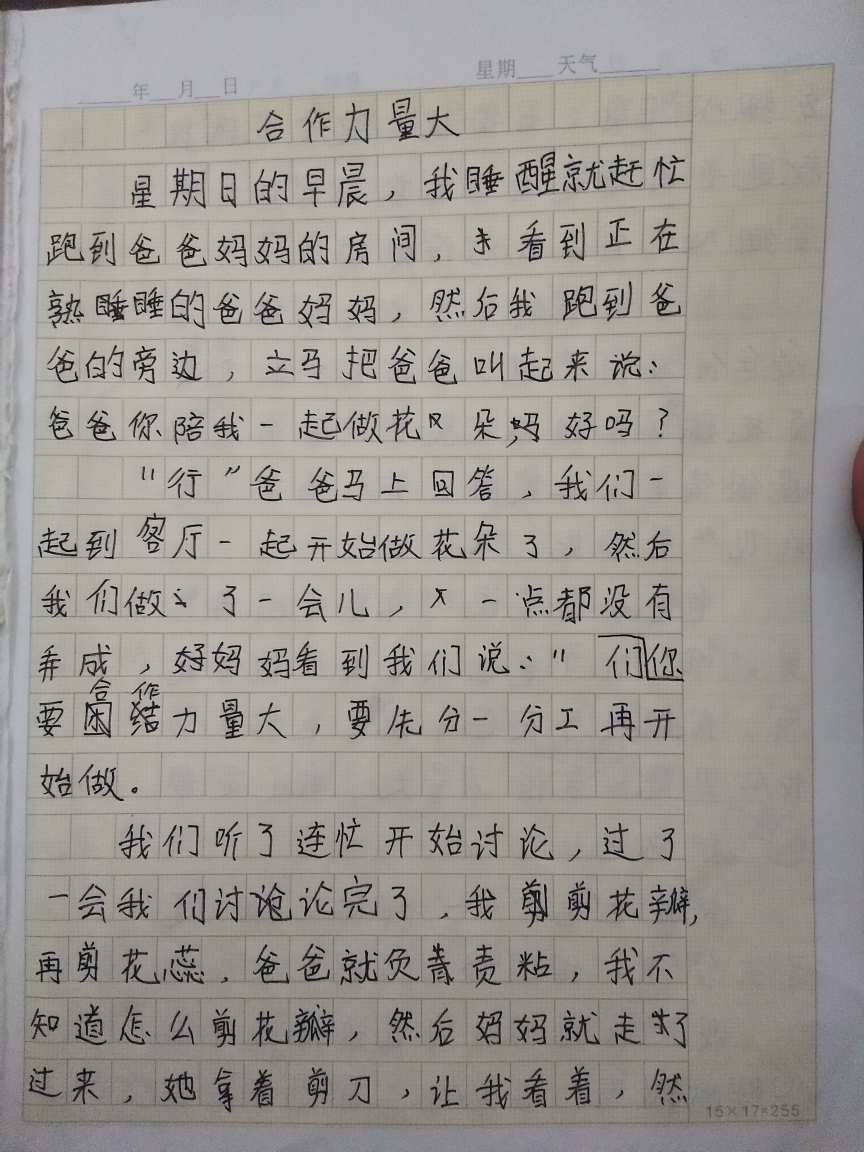 年 月 日 星期 天气
合作力量大
星期日的早晨，我睡醒就赶忙
跑到爸爸妈妈的房间，看到正在
熟睡睡的爸爸妈妈，然后我跑到爸
爸的旁边，立马把爸爸叫起来说：
爸爸你陪我一起做花朵，妈好吗？
“行”爸爸马上回答，我们一
起到客厅一起开始做花朵了，然后
我们做了一会儿，一点都没有
弄成，好妈妈看到我们说：“们你
要合作力量大，要先分一分工再开
始做。
我们听了连忙开始讨论，过了
一会我们讨论论完了，我剪剪花瓣，
再剪花蕊，爸爸就负责责粘，我不
知道怎么剪花瓣，然后妈妈就走了
过来，她拿着剪刀，让我看着，然
15×17=255